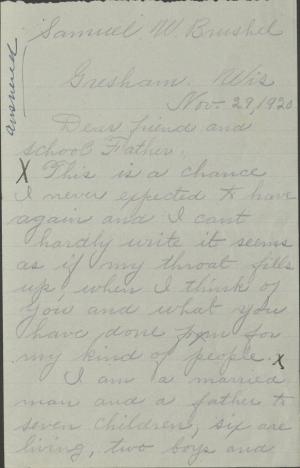 Samuel W. Brushel
answered
Gresham Wis
Nov. 29, 1920
Dear friend and
school Father.
X This is a chance
I never expected to have
again and I cant
hardly write it seems
as if my throat fills
up, when I think of
you and what you
have done for
my kind of people. X
I am a married
man and a father to
seven children, six are
living, two boys and